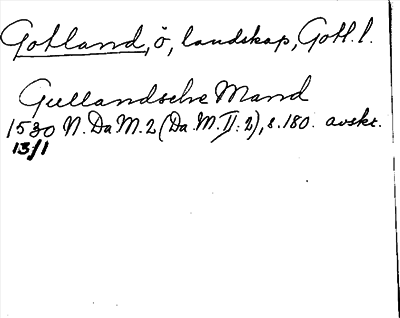 Gotland, ö, landskap, Gotl. l.
Gullandsche Mand
1530 N. Da M. 2 (Da. M. II: 2), s. 180. avskr.
13/1